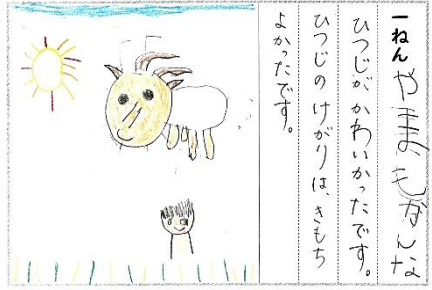 一ねん やまもとかんな
ひつじが かわいかったです。
ひつじの けがりは、きもち
よかったです。